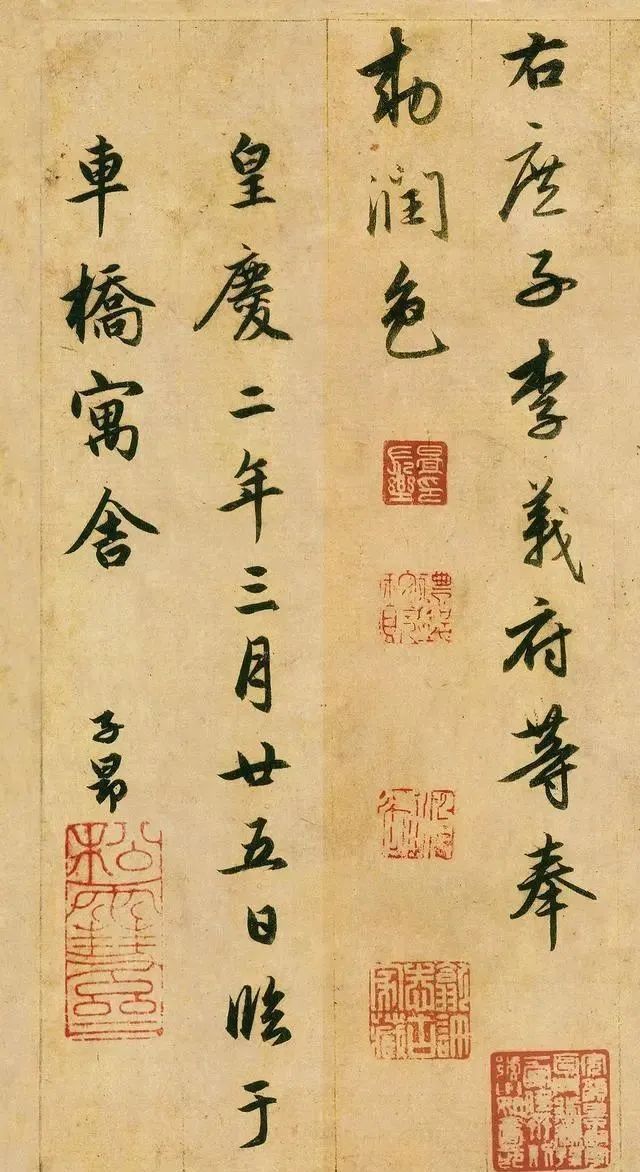 右庶子李義府等奉
勅潤色
皇慶二年三月廿五日臨于
車橋寓舍
子昂
松雪齋